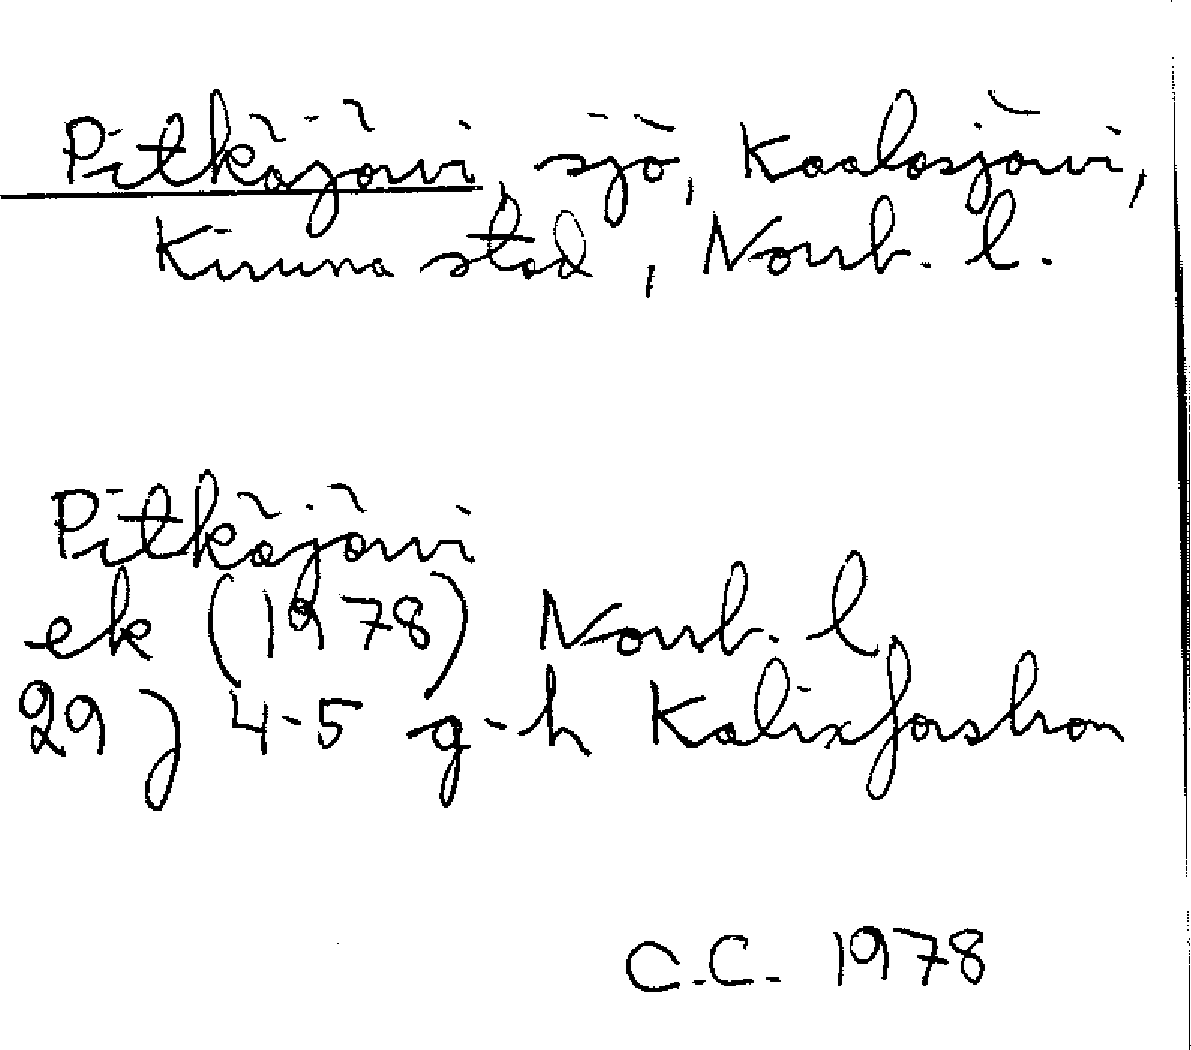 Pitkäjärvi, sjö, Kaalasjärvi,
Kiruna stad, Norrb. l.
Pitkäjärvi
ek (1978) Norrb. l.
29 J 4-5 g-h Kalixforsbron
C.C. 1978